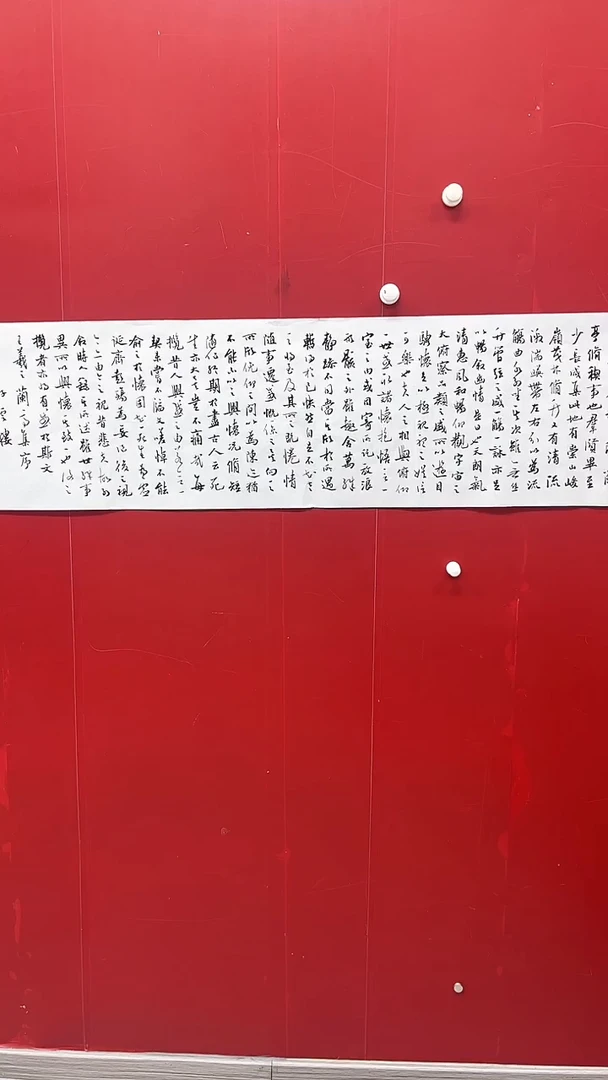 亭脩禊事也群賢畢至
少長咸集此地有崇山峻
嶺茂林脩竹又有清流
激湍映帶左右引以為流
觴曲水列坐其次雖無絲
竹管弦之盛一觴一詠亦足
以暢敘幽情是日也天朗氣
清惠風和暢仰觀宇宙之
大俯察品類之盛所以遊目
騁懷足以極視聽之娛信
可樂也夫人之相與俯仰
一世或取諸懷抱悟言一
室之內或因寄所託放浪
形骸之外雖趣舍萬殊
靜躁不同當其欣於所遇
暫得於己快然自足不知老
之將至及其所之既惓情
隨事遷感慨係之矣向之
所欣俛仰之間以為陳迹猶
不能不以之興懷況脩短
隨化終期於盡古人云死
生亦大矣豈不痛哉每
攬昔人興感之由若合一
契未嘗不臨文嗟悼不能
喻之於懷固知死生為虛
誕齊彭殤為妄作後之視
今亦由今之視昔悲夫故列
敘時人錄其所述雖世殊事
異所以興懷其致一也後之
攬者亦將有感於斯文
王羲之蘭亭集序